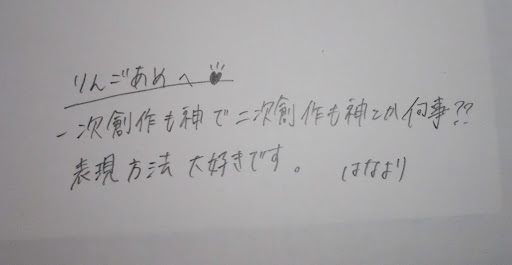 りんごあめへ
一次創作も神で二次創作も神とか何事??
表現方法 大好きです。 はなより